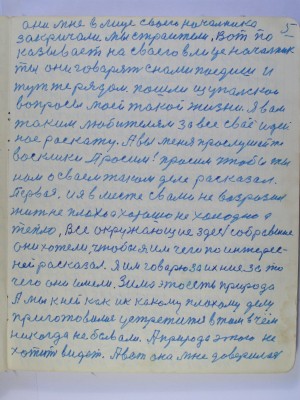 они мне в лице своего начальника 5
закричали мы строители. Вот по
казывает на своего в лице начальник
ты они говорят снами поедиш и
тут же рядом пошли щупальской
вопросы моей такой жизни. Я вам
таким любителям за все своё идей
ное раскажу. А вы меня прослушайте
восника Просим! просим чтобы ты
нам о своем таком деле расказал.
Первая. и я вместе свами не возрозил
жить не плохо а хорошо не холодно а
тепло, Все окружающие здесь собравшие
они хотели, чтобы я им чего по интерес-
ней расказал. Я им говорю за ихние за то
чего они имели. Земля это есть природа
А мы к ней как их какому плохому делу
приготовились и устретится в том в чём
никогда не бывали. А природа этого не
хотит видеть. А вот она мне доверилась